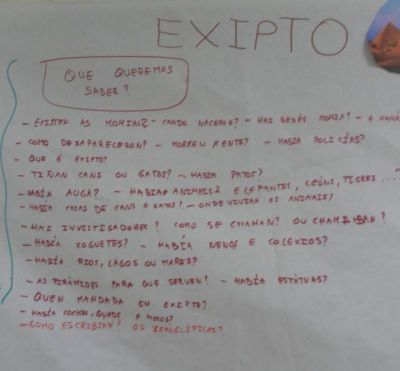 EXIPTO
QUE QUEREMOS
SABER?
- EXISTEN AS MOMIAS? - CANDO NACERON? - HAI BEBÉS MOMIA? - E MAMÁ
- COMO DESAPARECERON? - MORREU XENTE? - HABÍA POLICÍAS?
- QUE É EXIPTO?
- TIÑAN CANS OU GATOS? - HABÍA PATOS?
- HABÍA AUGA? - HABÍA ANIMAIS? ELEFANTES, LEÓNS, TIGRES ...?
- HABÍA CASAS DE CANS E GATOS? - ONDE VIVÍAN OS ANIMAIS?
- HAI INVESTIGADORES? COMO SE CHAMAN? OU CHAMABAN?
- HABÍA XOGUETES? - HABÍA NENOS E COLEXIOS?
- HABÍA RÍOS, LAGOS OU MARES?
- AS PIRÁMIDES PARA QUE SERVEN? - HABÍA ESTATUAS?
- QUEN MANDABA EN EXIPTO?
- HABÍA COCHES, QUADS E MOTOS?
- COMO ESCRIBÍAN? OS XEROGLÍFICOS?